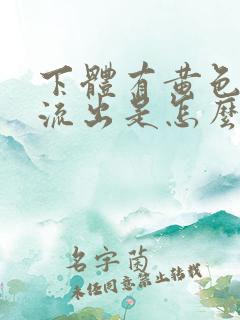 下體有黄色
流出是怎麽
名字茵
未经同意禁止转载